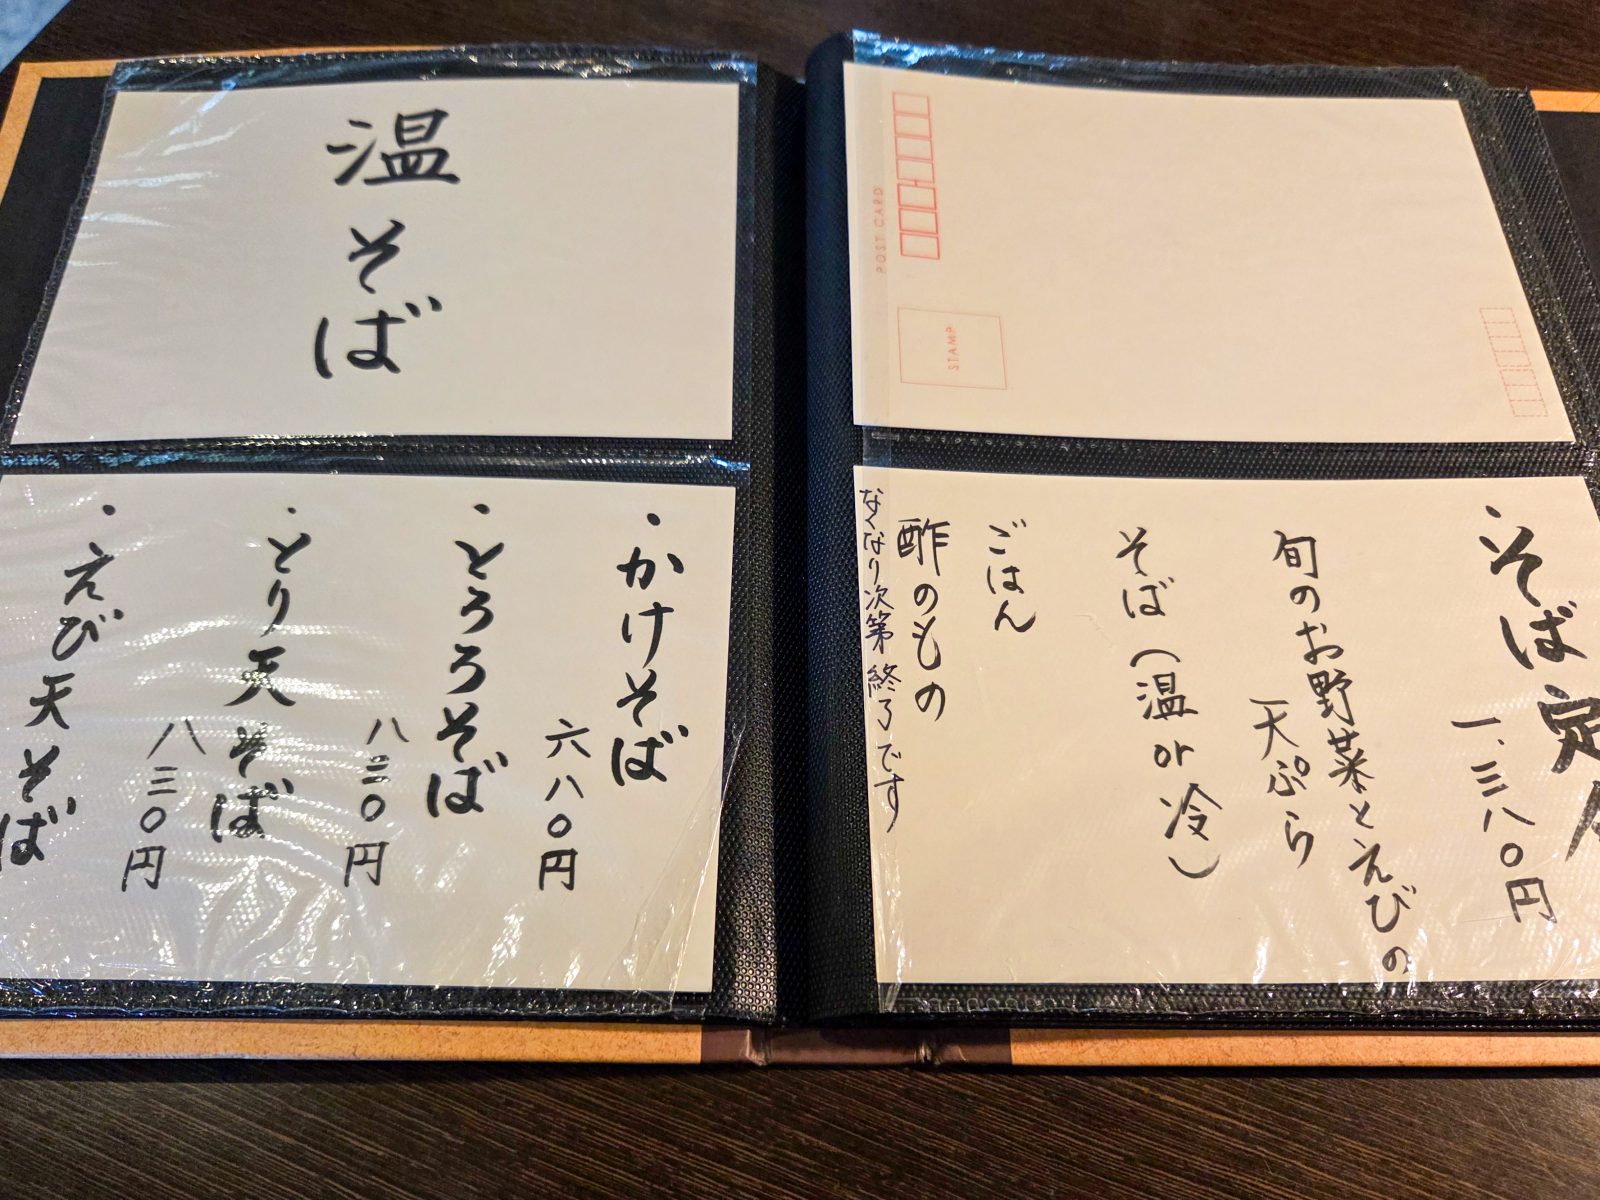 温そば
・かけそば
六八〇円
・とろろそば
八三〇円
・とり天そば
八三〇円
・えび天そば
POST CARD
STAMP
・そば定
一、三八〇円
旬のお野菜とえびの
天ぷら
そば（温or冷）
ごはん
酢のもの
なくなり次第終了です